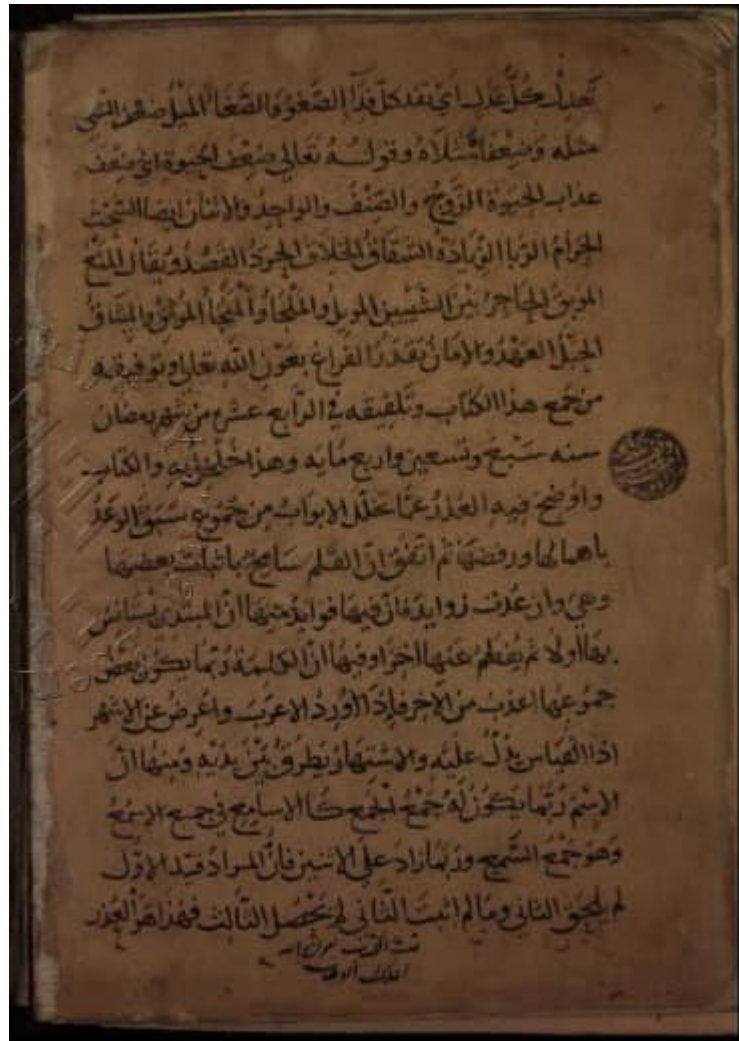 تعدل كل عدل اي تفد كل فدآ الصغو والصغا الميل ضعف الشي
مثله وضعفاه مثلاه وقوله تعالى ضعف الحيوة اي ضعف
عذاب الحيوة الزوج والصنف والواحد والاثنان ايضا السحت
الحرام الربا الزيادة الشقاق الخلاف الحرد القصد ويقال المنع
الموبق الحاجز بين الشيين الموبل والملجأ والمنجأ الموثق والميثاق
الحبل العهد والامان بقدر الفراغ بعون الله تعالى وتوفيقه
من جمع هذا الكتاب وتلفيقه في الرابع عشر من شهر رمضان
سنه سبع وتسعين واربع مايه وهذا والكتاب
واوضح فيه العذر عما خلل الابواب من جموع سبق الوعد
باهمالها ورفضها ثم اتفق ان القلم سامح باثبات بعضها
وهي وان عدت زوايد فان فيها فوايد منها ان المبتدي يستانس
بها اولا ثم يفطم عنها اخرا وفيها ان الكلمة ربما يكون بعض
جموعها اعذب من الاخر فاذا اورد الاعرب واعرض عن الاشهر
اذا القياس يدل عليه والاشتهار يطرق بين يديه ومنها ان
الاسم ربما يكون له جمع الجمع كالاسامع في جمع الاسمع
وهو جمع السمع وربما زاد على الاثنين فان المراد قيد الاول
لم يلحق الثاني وما لم اثبت الثاني لم يحصل الثالث فهذا هو العذر
تمت
الملك الوهاب